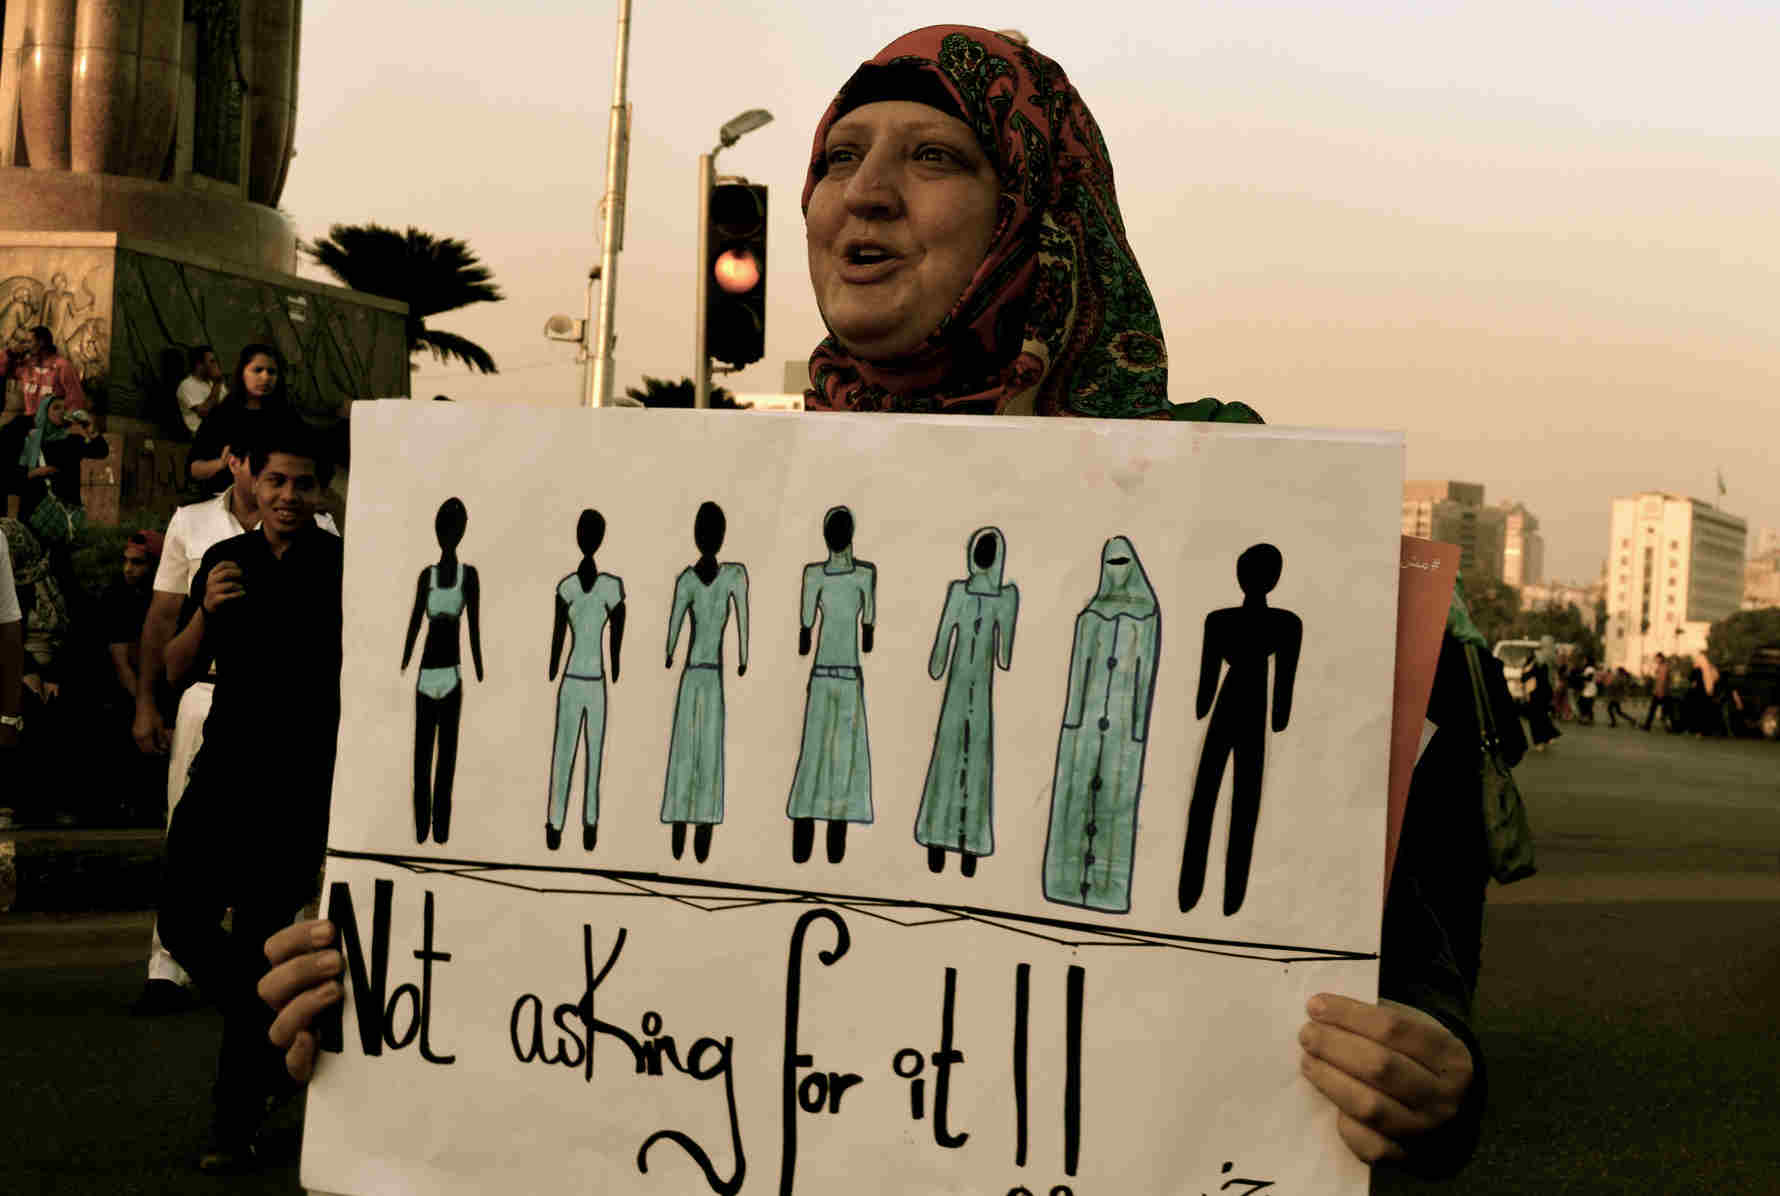 Not asking for it!!
#مش